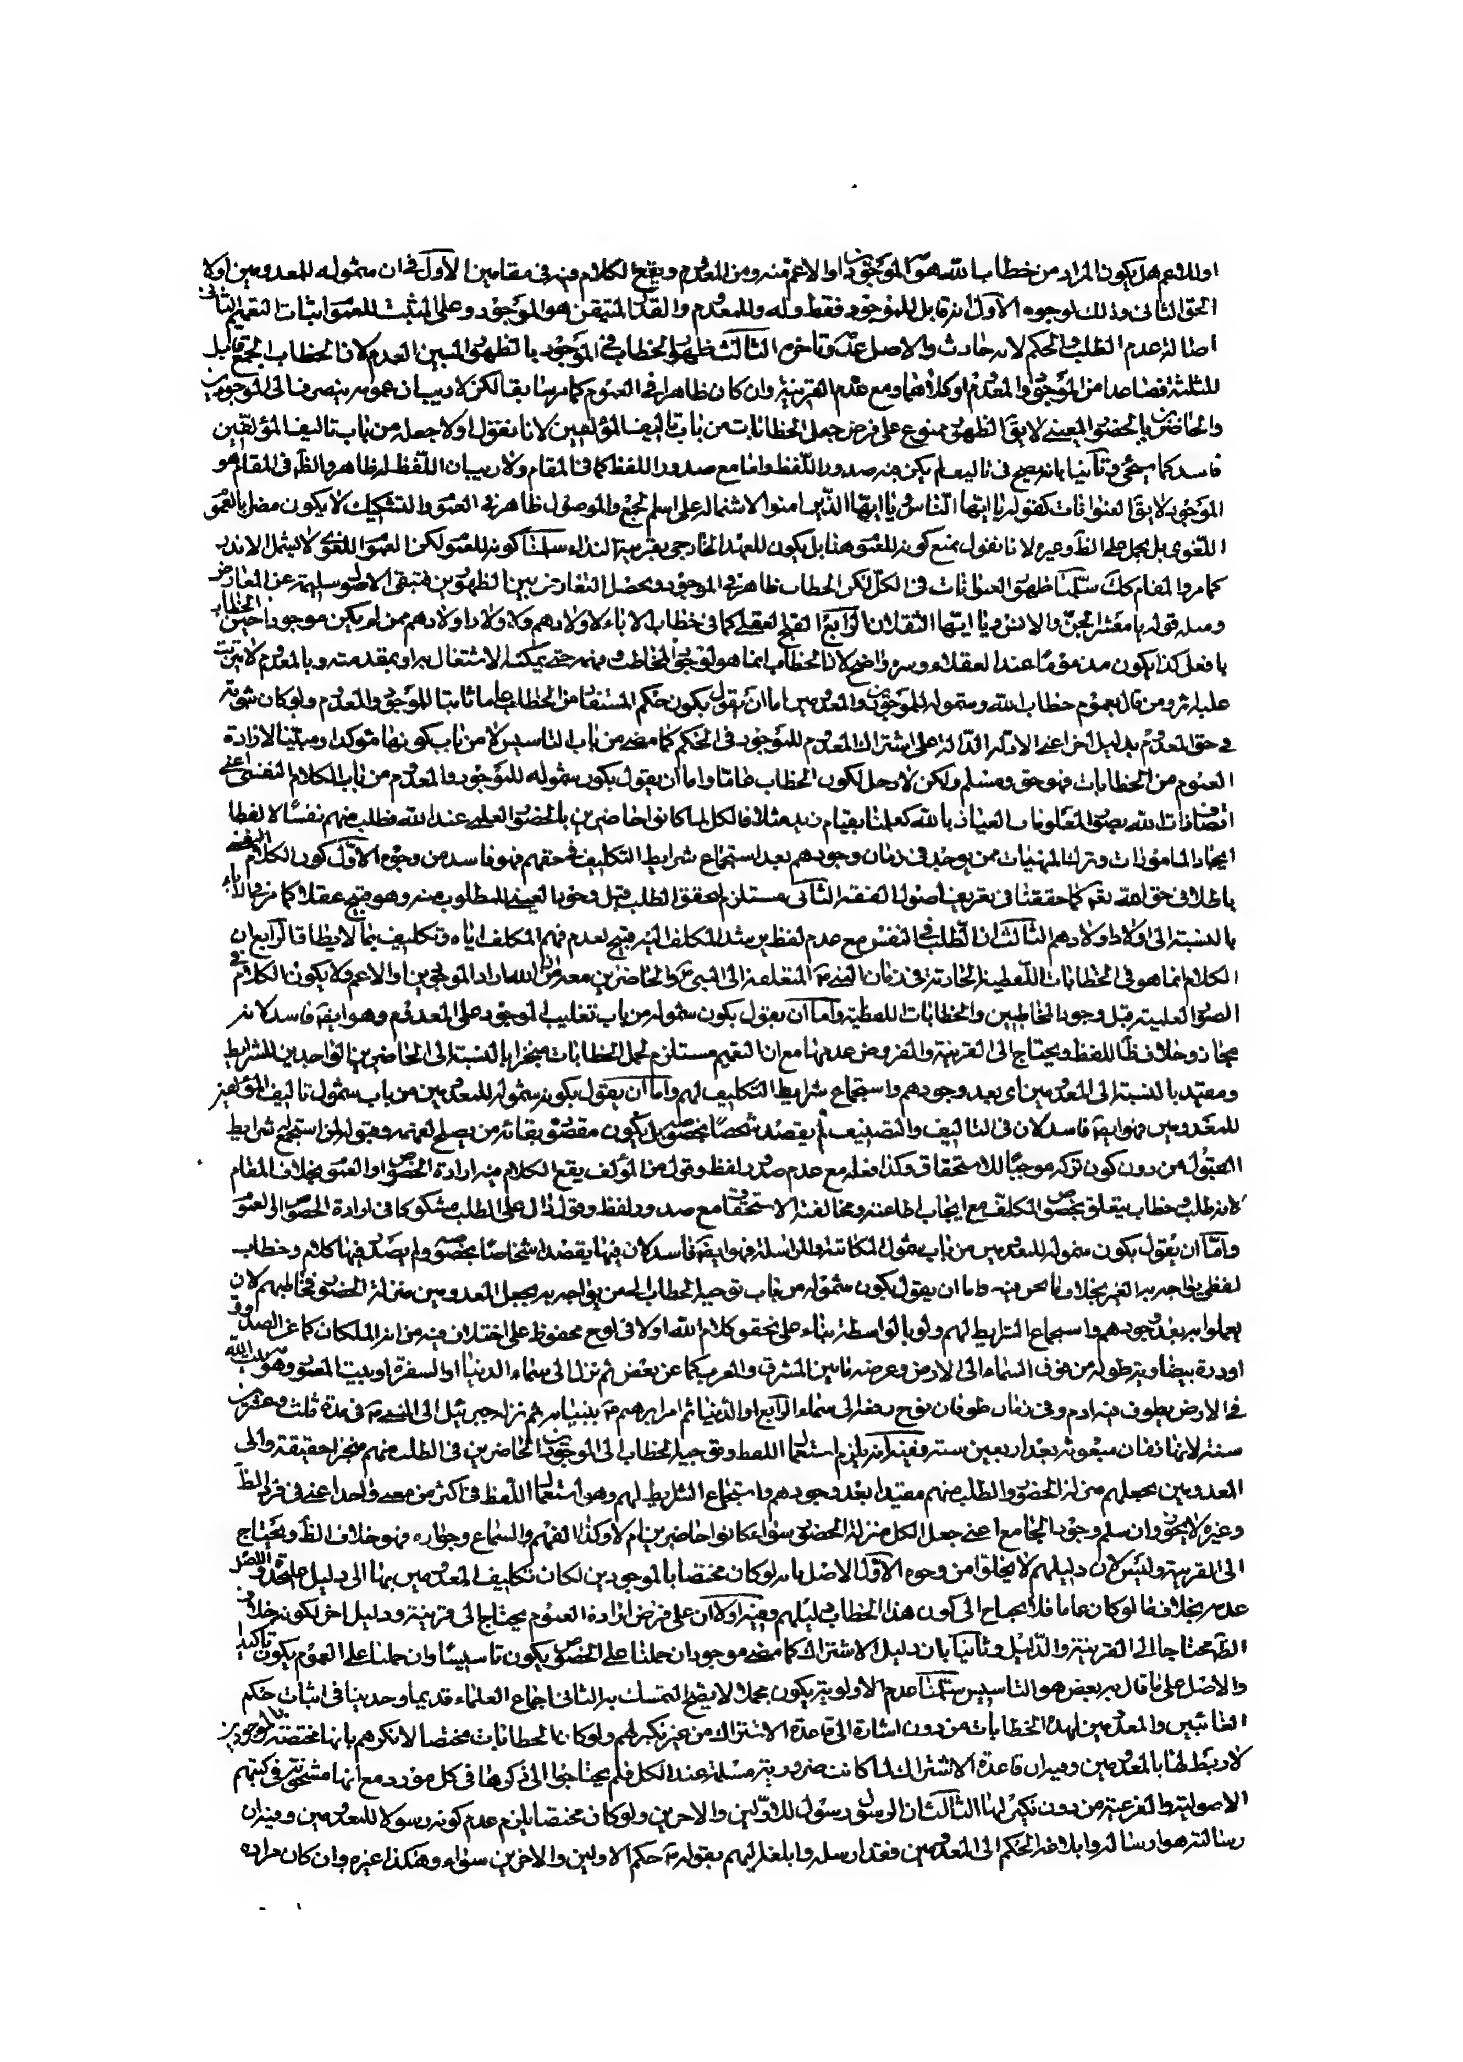 او للاعم هل يكون المراد من خطاب الله هو الموجودين او الاعم منه ومن المعدوم ويقع الكلام فيه في مقامين الاول في ان شموله للمعدومين اولا
الحق الثاني وذلك لوجوه الاول انه قابل للموجود فقط وله وللمعدوم والقدر المتيقن هو الموجود وعلى المثبت للعموم اثبات التعميم الثاني
اصالة عدم الطلب والحكم لانه حادث والاصل عدمه وتاخره الثالث ظهور الخطاب في الموجود بالظهور المبين العدم لان الخطاب الجمع قابل
للثلثة فصاعدا من الموجود والمعدوم او كلاهما ومع عدم القرينة وان كان ظاهرا في العموم كما مر سابقا لكن لا ريب ان عمومه ينصرف الى الموجودين
والحاضرين بالحضور العيني لا يقال الظهور ممنوع على فرض جعل الخطابات من باب تاليف المؤلفين لانا نقول اولا جعله من باب تاليف المؤلفين
فاسد كما يجئ وثانيا بانه يصح في تاليف لم يكن فيه صدور اللفظ واما مع صدور اللفظ كما في المقام ولا ريب ان اللفظ له ظاهر والظاهر في المقام هو
الموجود لا يقال العنوانات كقوله يا ايها الناس يا ايها الذين امنوا لاشتماله على اسم الجمع والموصول ظاهرة في العموم والتشكيك لا يكون مضرا بالعموم
اللغوي بل يحمل على الظاهر وغيره لانا نقول نمنع كونه للعموم هنا بل يكون للعهد الخارجي بقرينة النداء سلمنا كونه للعموم لكن العموم اللغوي لا يشمل الا
كما مر والمقام كك سلمنا ظهور العنوانات في الكل لكن الخطاب ظاهر في الموجود ويحصل التعارض بين الظهورين فتبقى الاصول سليمة عن المعارض
ومثله قوله يا معشر الجن والانس ويا ايها الثقلان الرابع القبح العقلي كما في خطاب الاباء لاولادهم ولاولاد اولادهم ممن لم يكن موجودا حين الخطاب
بافعل كذا يكون مذموما عند العقلاء وسره واضح لان الخطاب انما هو لتوجه المخاطب وفهمه حتى يمكنه الاشتغال به او بمقدمته وبالمعدوم لا يترتب
عليه اثر ومن قال بعموم خطاب الله وشموله للموجودين والمعدومين اما ان يقول يكون حكم المستفاد من الخطاب عاما ثابتا للموجود والمعدوم ولو كان ثبوته
في حق المعدوم بدليل اخر اعني الادلة الدالة على اشتراك المعدوم للموجود في الحكم كما مضى من باب التاسيس لا من باب كونها مؤكدا ومبينا لارادة
العموم من الخطابات فهو حق ومسلم ولكن لا دخل لكون الخطاب عاما واما ان يقول يكون شموله للموجود والمعدوم من باب الكلام النفسي اعني
اتصاف ذات الله بصور المعلومات العياذ بالله كعلمنا بقيام زيد مثلا فالكل لما كانوا حاضرين بالحضور العلمي عند الله فطلب منهم نفسا لا لفظا
ايجاد المامورات وترك المنهيات ممن يوجد في زمان وجودهم بعد استجماع شرايط التكليف في حقهم فهو فاسد من وجوه الاول كون الكلام النفسي
باطلا في حق الله تعالى كما حققنا في تعريف اصول الفقه الثاني مستلزم لتحقق الطلب قبل وجود العيني للمطلوب منه وهو قبيح عقلا كما مر في الاباء
بالنسبة الى اولاد اولادهم الثالث ان الطلب في النفس مع عدم لفظ يرشد المكلف اليه قبيح لعدم فهم المكلف اياه وتكليف بما لا يطاق الرابع ان
الكلام انما هو في الخطابات اللفظية الحادثة في زمان النبي المتعلقة الى النبي والحاضرين معه من ان الله اراد الموجودين او الاعم ولا يكون الكلام في
الصور العلمية قبل وجود المخاطبين والخطابات اللفظية واما ان يقول يكون شموله من باب تغليب الموجود على المعدوم وهو ايضا فاسد لانه
مجاز وخلاف ظاهر اللفظ ويحتاج الى القرينة والمفروض عدمها مع ان التعميم مستلزم لحمل الخطابات منجزا بالنسبة الى الحاضرين الواجدين للشرايط
ومقيد بالنسبة الى المعدومين اي بعد وجودهم واستجماع شرايط التكليف لهم واما ان يقول بكونه شموله للمعدومين من باب شمول تاليف المؤلفين
للمعدومين فهو ايضا فاسد لان في التاليف والتصنيف لم يقصد شخصا بخصوصه بل يكون مقصوده بقائه من يصلح لفهمه وقبوله لمن استجمع شرايط
القبول من دون كون تركه موجبا للاستحقاق وكذا فعله مع عدم صدور لفظ وقول من المؤلف يقع الكلام فيه ارادة الخصوص او العموم بخلاف المقام
لانه طلب وخطاب يتعلق بخصوص المكلف مع ايجاب اطاعته ومخالفته الاستحقاق مع صدور لفظ وقول دال على الطلب مشكوكا في ارادة الخصوص او العموم
واما ان يقول يكون شموله للمعدومين من باب شمول المكاتبة والمراسلة فهو ايضا فاسد لان فيها يقصد اشخاصا بخصوصه ولم يصدر فيها كلام وخطاب
لفظي يواجه به الغير بخلاف ما نحن فيه واما ان يقول يكون شموله من باب توجيه الخطاب الى من يواجه به بجعل المعدومين منزلة الحضور فخاطبهم لان
يعملوا به بعد وجودهم واستجماع الشرايط لهم ولو بالواسطة بناء على تحقق كلام الله اولا في لوح محفوظ على اختلاف فيه من انه الملكان كما عن الصدوق
او درة بيضاوية طوله من فوق السماء الى الارض وعرضه ما بين المشرق والمغرب كما عن بعض ثم نزل الى سماء الدنيا او السفرة او بيت المعمور وهو بيت الله
في الارض يطوف فيه ادم وفي زمان طوفان نوح رفعه الى سماء الرابع او الدنيا ثم امر ابرهيم ببنيانه ثم نزله جبرئيل الى النبي في مدة ثلث وعشرين
سنة لانها زمان مبعوثه بعد اربعين سنة وفيه انه يلزم استعمال اللفظ وتوجيه الخطاب الى الموجودين الحاضرين في الطلب منهم منجزا حقيقة والى
المعدومين بجعلهم منزلة الحضور والطلب منهم مقيدا بعد وجودهم واستجماع الشرايط لهم وهو استعمال اللفظ في اكثر من معنى واحد اعني في فرد الظاهر
وغيره لا يجوز وان سلم وجود الجامع اعني جعل الكل منزلة الحضور سواء كانوا حاضرين ام لا وكذا الفهم والسماع وجواره فهو خلاف الظاهر ويحتاج
الى القرينة وليس لان دليلهم لا يخلو من وجوه الاول الاصل بانه لو كان مختصا بالموجودين لكان تكاليف المعدومين بها الى دليل والاصل
عدمه بخلاف ما لو كان عاما فلا يحتاج الى كون هذا الخطاب دليلهم وفيه اولا ان على فرض ارادة العموم يحتاج الى قرينة ودليل اخر لكونه خلاف
الظاهر محتاجا الى القرينة والدليل وثانيا بان دليل الاشتراك كما مضى موجود ان حملنا على الخصوص يكون تاسيسا وان حملنا على العموم يكون تاكيدا
والاصل على ما قال به بعض هو التاسيس سلمنا عدم الاولوية يكون مجملا لا يصح التمسك به الثاني اجماع العلماء قديما وحديثا في اثبات حكم
الغائبين والمعدومين لهذه الخطابات من دون اشارة الى قاعدة الاشتراك من غير نكير لهم ولو كان الخطابات مختصا لانكرهم بانها مختصة بالموجودين
لا ربط لها بالمعدومين وفيه ان قاعدة الاشتراك لما كانت ضرورية مسلمة عند الكل فلم يحتاجوا الى ذكرها في كل مورد مع انها مشحونة في كتبهم
الاصولية والفرعية من دون نكير لها الثالث ان الرسول رسول للاولين والاخرين ولو كان مختصا يلزم عدم كونه رسولا للمعدومين وفيه ان
رسالته هو ارساله وابلاغه الحكم الى المعدومين فقد ارسله وابلغه اليهم بقوله حكم الاولين والاخرين سواء وهكذا غيره وان كان مراده